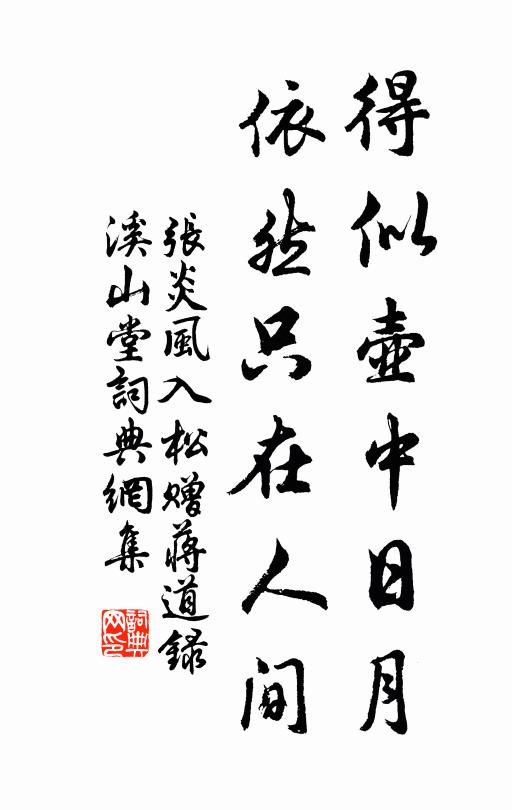 得似壺中日月
依然只在人间
張炎風入松赠蒋道録
溪山堂詞典網集
詞典网印